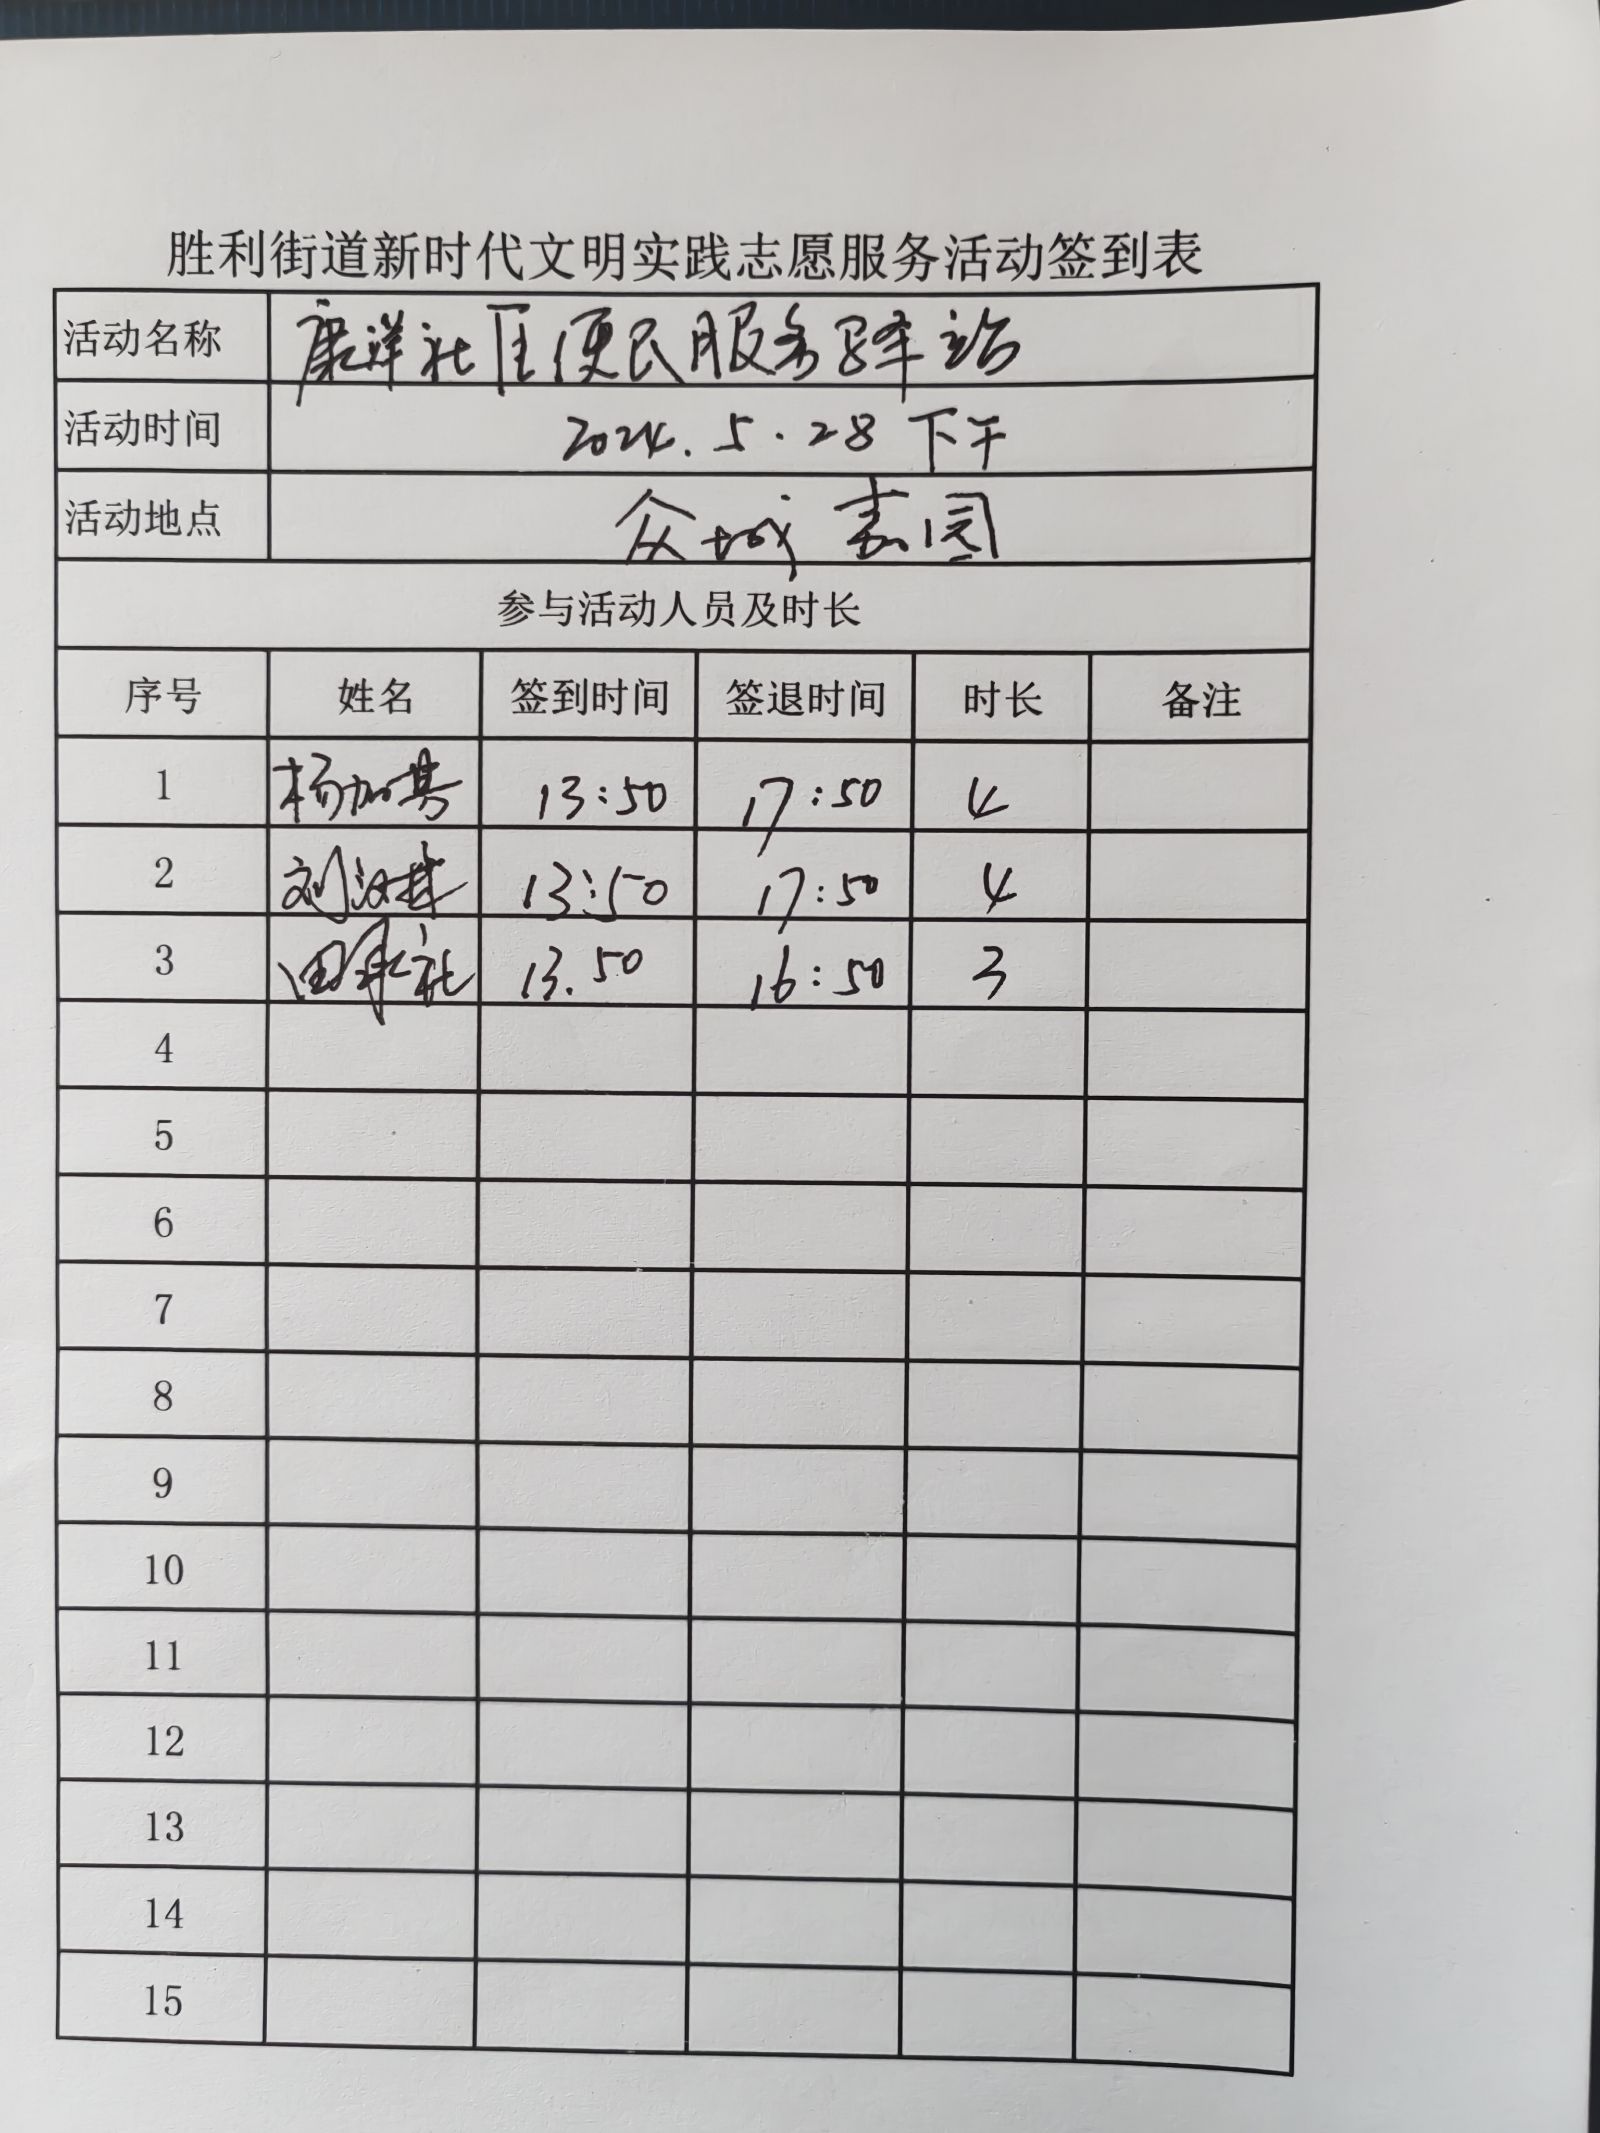 胜利街道新时代文明实践志愿服务活动签到表
活动名称 康洋社区便民服务驿站
活动时间 2024.5.28 下午
活动地点 众城嘉园
参与活动人员及时长
序号 姓名 签到时间 签退时间 时长 备注
1 杨加 13:50 17:50 4
2 刘 13:50 17:50 4
3 田 13.50 16:50 3
4
5
6
7
8
9
10
11
12
13
14
15